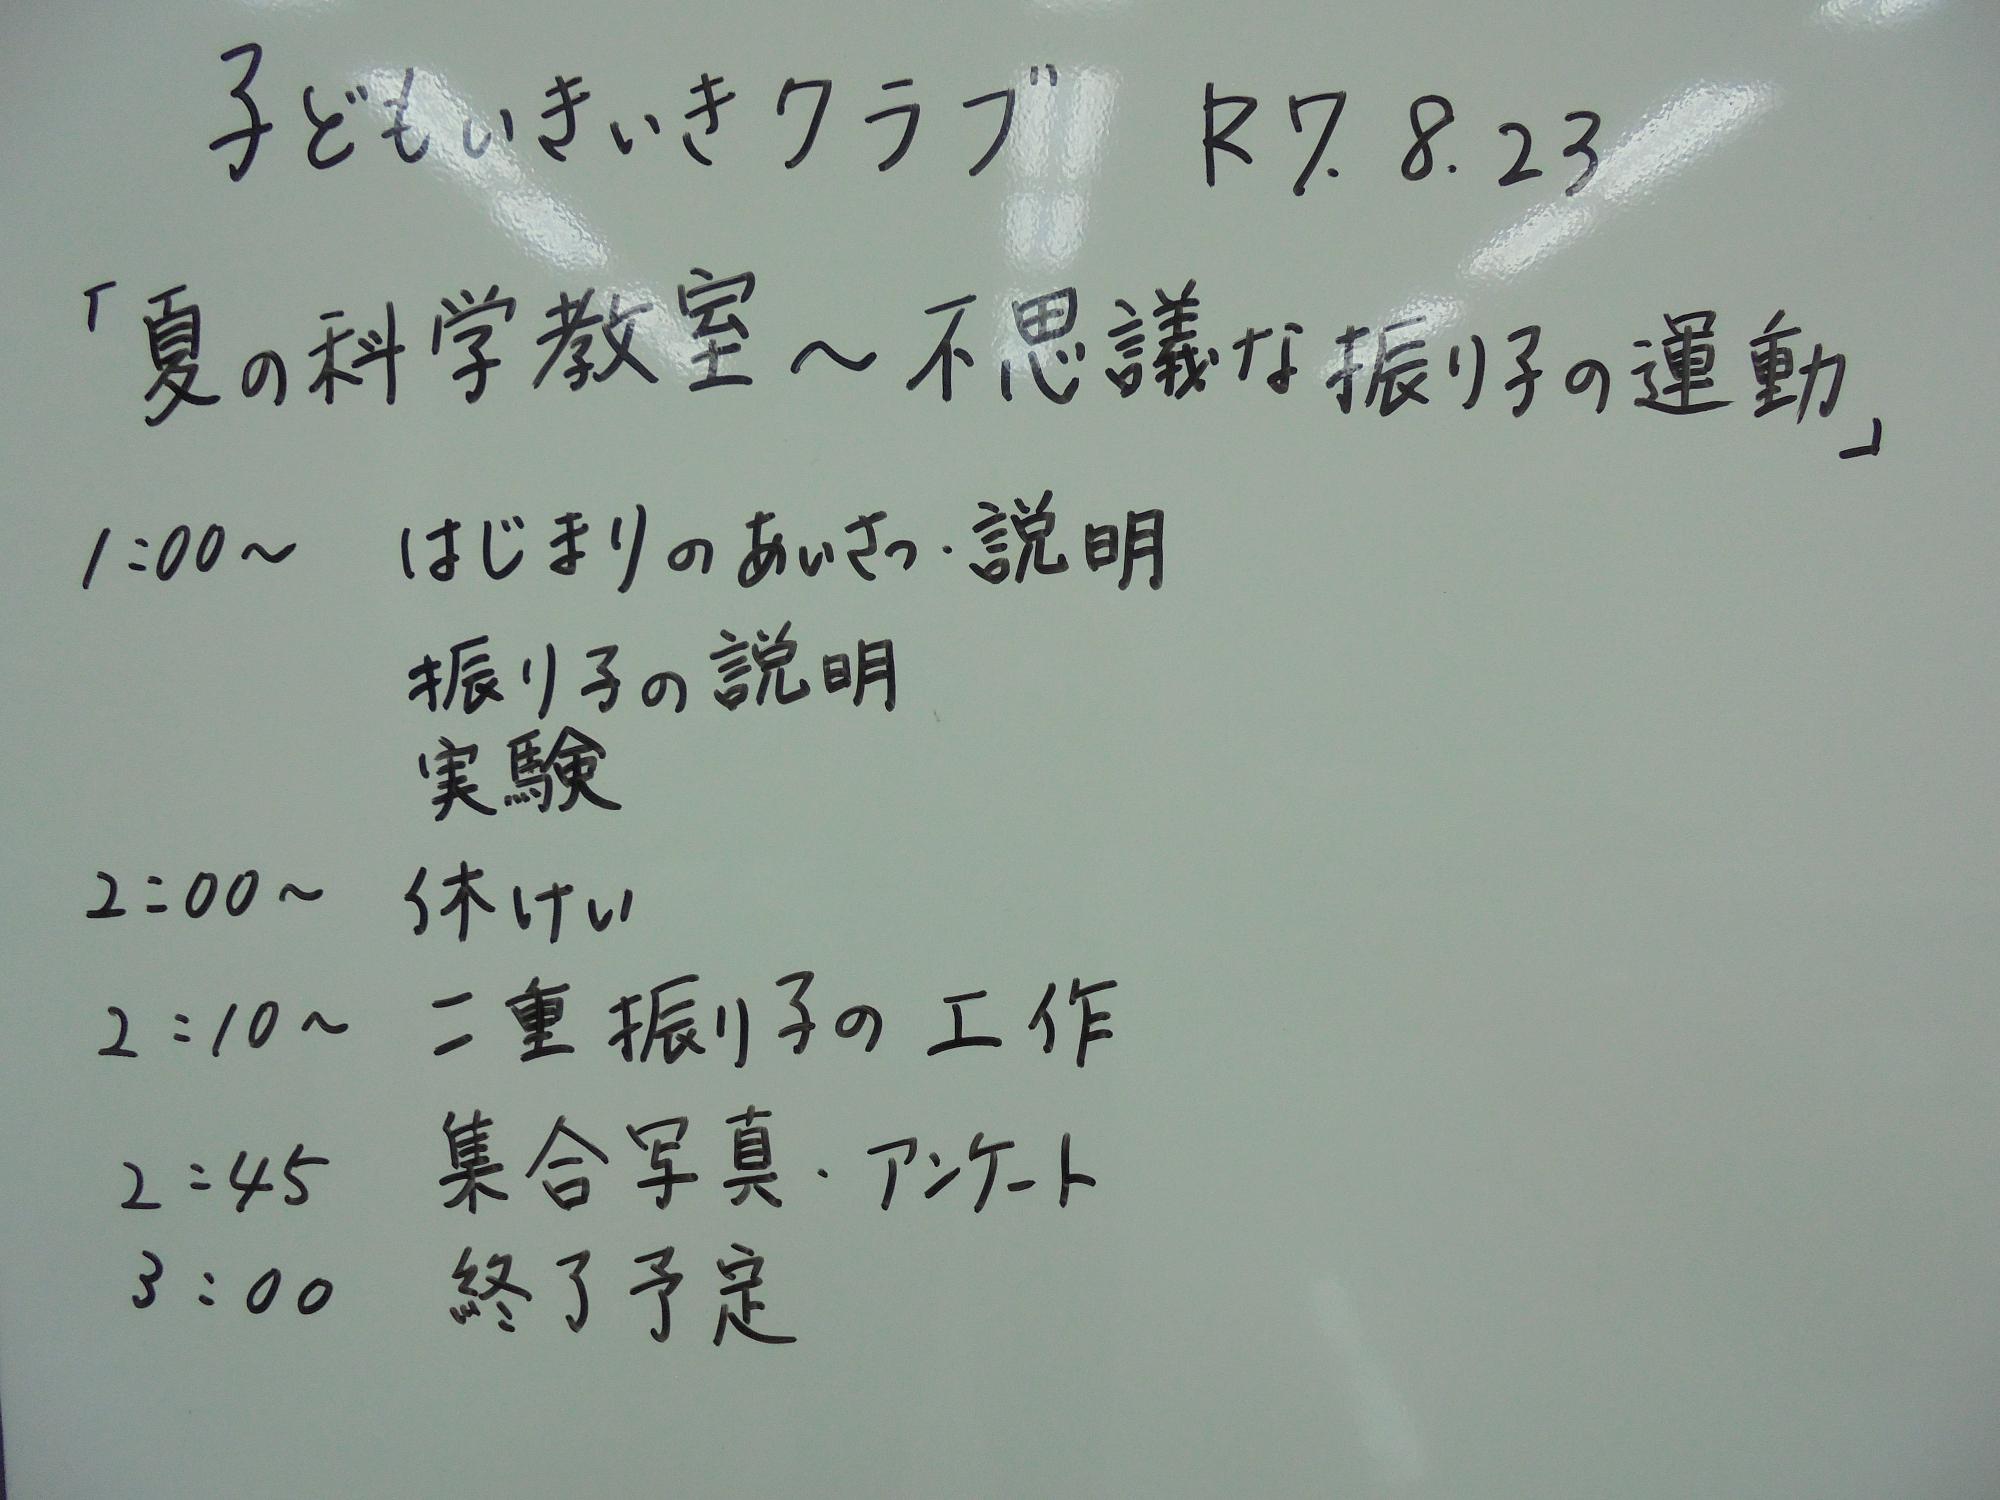 子どもいきいきクラブ R7.8.23
「夏の科学教室～不思議な振り子の運動」
1:00～ はじまりのあいさつ・説明
振り子の説明
実験
2:00～ 休けい
2:10～ 二重振り子の工作
2:45 集合写真・アンケート
3:00 終了予定